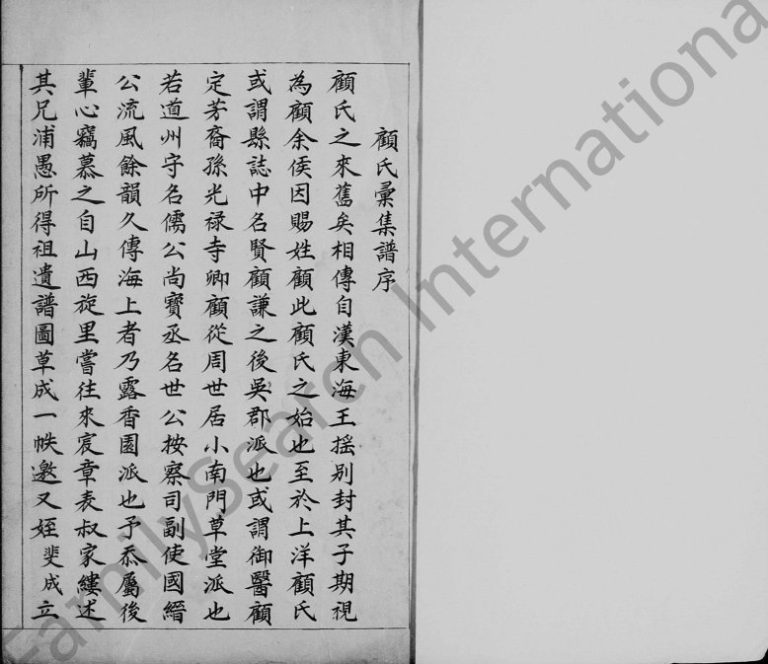 顧氏彙集譜序
顧氏之來舊矣相傳自漢東海王揺别封其子期視
為顧余侯因賜姓顧此顧氏之始也至於上洋顧氏
或謂縣誌中名賢顧謙之後吳郡派也或謂御醫顧
定芳裔孫光禄寺卿顧從周世居小南門草堂派也
若道州守名儒公尚寶丞名世公按察司副使國縉
公流風餘韻久傳海上者乃露香園派也予忝屬後
輩心竊慕之自山西旋里嘗往來宸章表叔家縷述
其兄浦愚所得祖遺譜圖草成一帙邀又姪斐成立
FamilySearch International